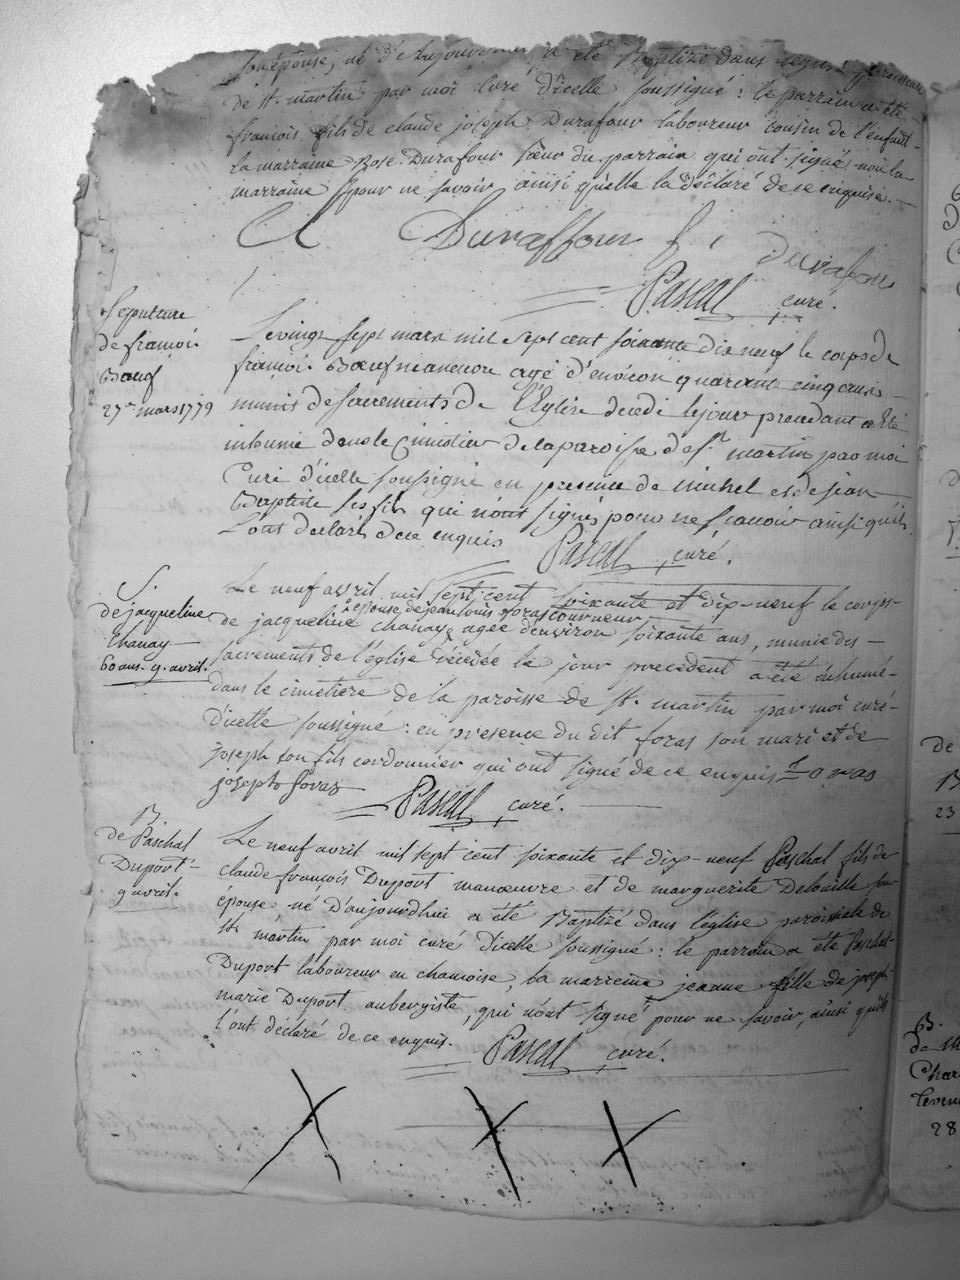 son épouse, né d'aujourd'hui a été Baptizé dans
de St. martin par moi curé d'icelle soussigné : le parrain a été
francois fils de claude joseph Durafour laboureur cousin de l'enfant
la marraine Rose Durafour sœur du parrain qui ont signés non la
marraine pour ne savoir ainsi qu'elle la déclaré de ce enquise. —
Duraffour f. Durafour
Pascal curé.
Sepulture
de françoi
Bœuf
27e mars 1779
Le vingt sept mars mil sept cent soixante dix neuf le corps de
françoi Bœuf agé d'environ quarante cinq ans
munis de sacrements de l'Eglise decedé le jour precedent a eté
inhumé dans le Cimitier de la paroisse de St martin par moi
Curé d'icelle soussigné en presence de michel et de jean
Baptiste ses fils qui n'ont signés pour ne scavoir ainsi qu'ils
l'ont declaré de ce enquis Pascal curé.
S.
de jacqueline
Chanay
60 ans. 9. avril.
Le neuf avril mil sept cent soixante et dix-neuf le corps
épouse de jean louis foras tourneur
de jacqueline chanay agée d'environ soixante ans, munie des —
sacrements de l'église décédée le jour precedent a été inhumé-
dans le cimetiere de la paroisse de St. martin par moi curé-
d'icelle soussigné : en presence du dit foras son mari et de
joseph son fils cordonnier qui ont signé de ce enquis foras
joseph foras Pascal curé.
B.
de Paschal
Duport
9 avril.
Le neuf avril mil sept cent soixante et dix-neuf Paschal fils de
claude françois Duport manœuvre et de marguerite Delouille son
épouse né D'aujourdhui a été Baptizé dans l'eglise paroissiale de
St. martin par moi curé d'icelle soussigné : le parrain a été Paschal
Duport laboureur en chamoise, la marreine jeanne fille de joseph-
marie Duport aubergiste, qui n'ont signé pour ne savoir, ainsi qu'ils
l'ont déclaré de ce enquis. Pascal curé.
B.
28